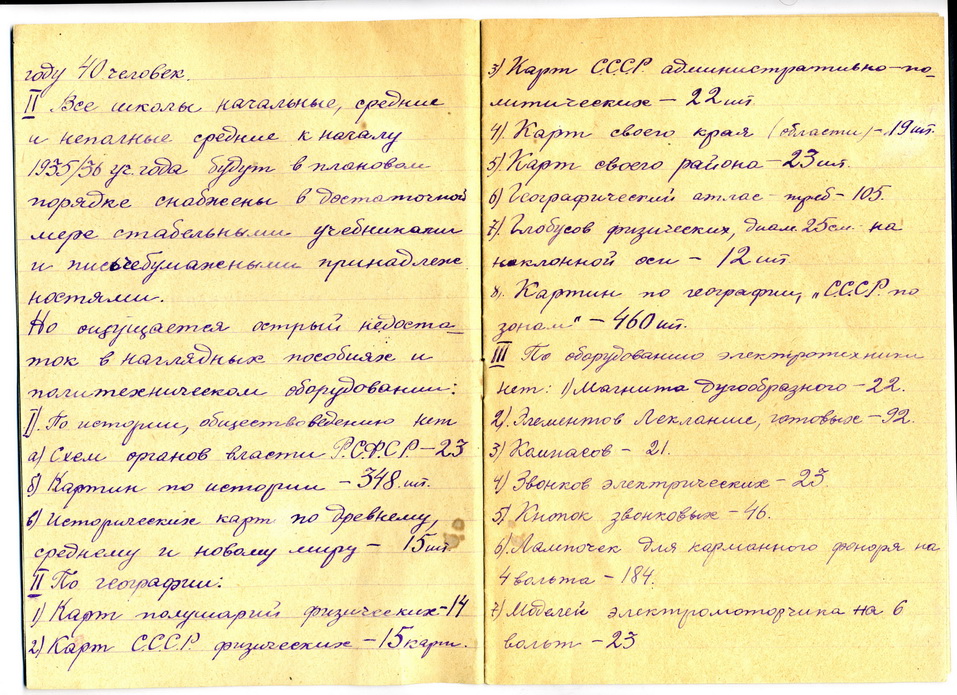 году 40 человек.
II Все школы начальные, средние
и неполные средние к началу
1935/36 уч. года будут в плановом
порядке снабжены в достаточной
мере стабильными учебниками
и письчебумажными принадлеж
ностями.
Но ощущается острый недоста-
ток в наглядных пособиях и
политехническом оборудовании:
I). По истории, обществоведению нет
а) Схем органов власти Р.С.Ф.С.Р. – 23
б) Картин по истории – 348 шт.
в) Исторических карт по древнему,
среднему и новому миру – 15 шт.
II По географии:
1) Карт полушарий физических – 14
2) Карт С.С.С.Р. физических – 15 карт.
3) Карт С.С.С.Р. административно-по-
литических – 22 шт.
4) Карт своего края (области) – 19 шт.
5) Карт своего района – 23 шт.
6) Географический атлас – – 105.
7) Глобусов физических, диам. 25 см. на
наклонной оси – 12 шт.
8). Картин по географии, „С.С.С.Р. по
зонам" – 460 шт.
III По оборудованию электротехники
нет: 1) Магнита дугообразного – 22.
2). Элементов Лекланше, готовых – 92.
3) Компасов – 21.
4) Звонков электрических – 23.
5). Кнопок звонковых – 46.
6). Лампочек для карманного фонаря на
4 вольта – 184.
7) Моделей электромоторчика на 6
вольт – 23